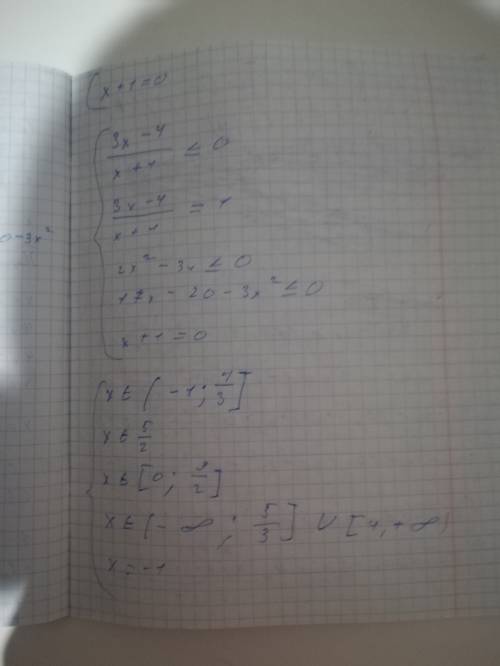 x+1=0
(3x-4)/(x+1) ≤ 0
(3x-4)/(x+1) = 1
2x² - 3x ≤ 0
0-3x²
17x - 20 - 3x² ≤ 0
x+1=0
x∈(-1; 4/3]
x∈ 5/2
x∈[0; 3/2]
x∈(-∞; 5/3] ∪ [4,+∞)
x=-1